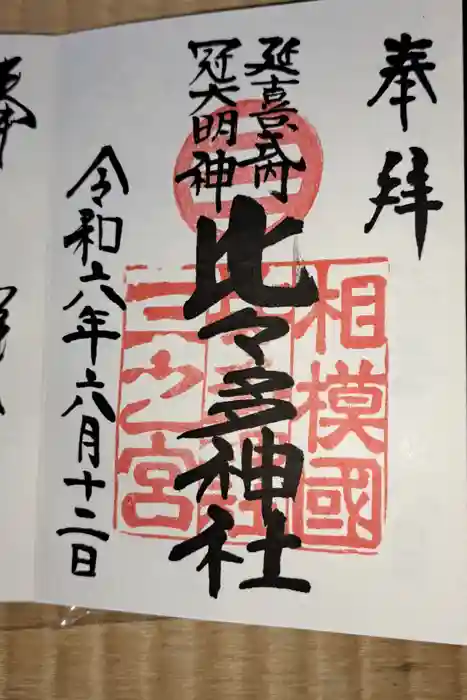 奉拝
延喜式内
冠大明神
比々多神社
相模國
三之宮
令和六年六月十二日